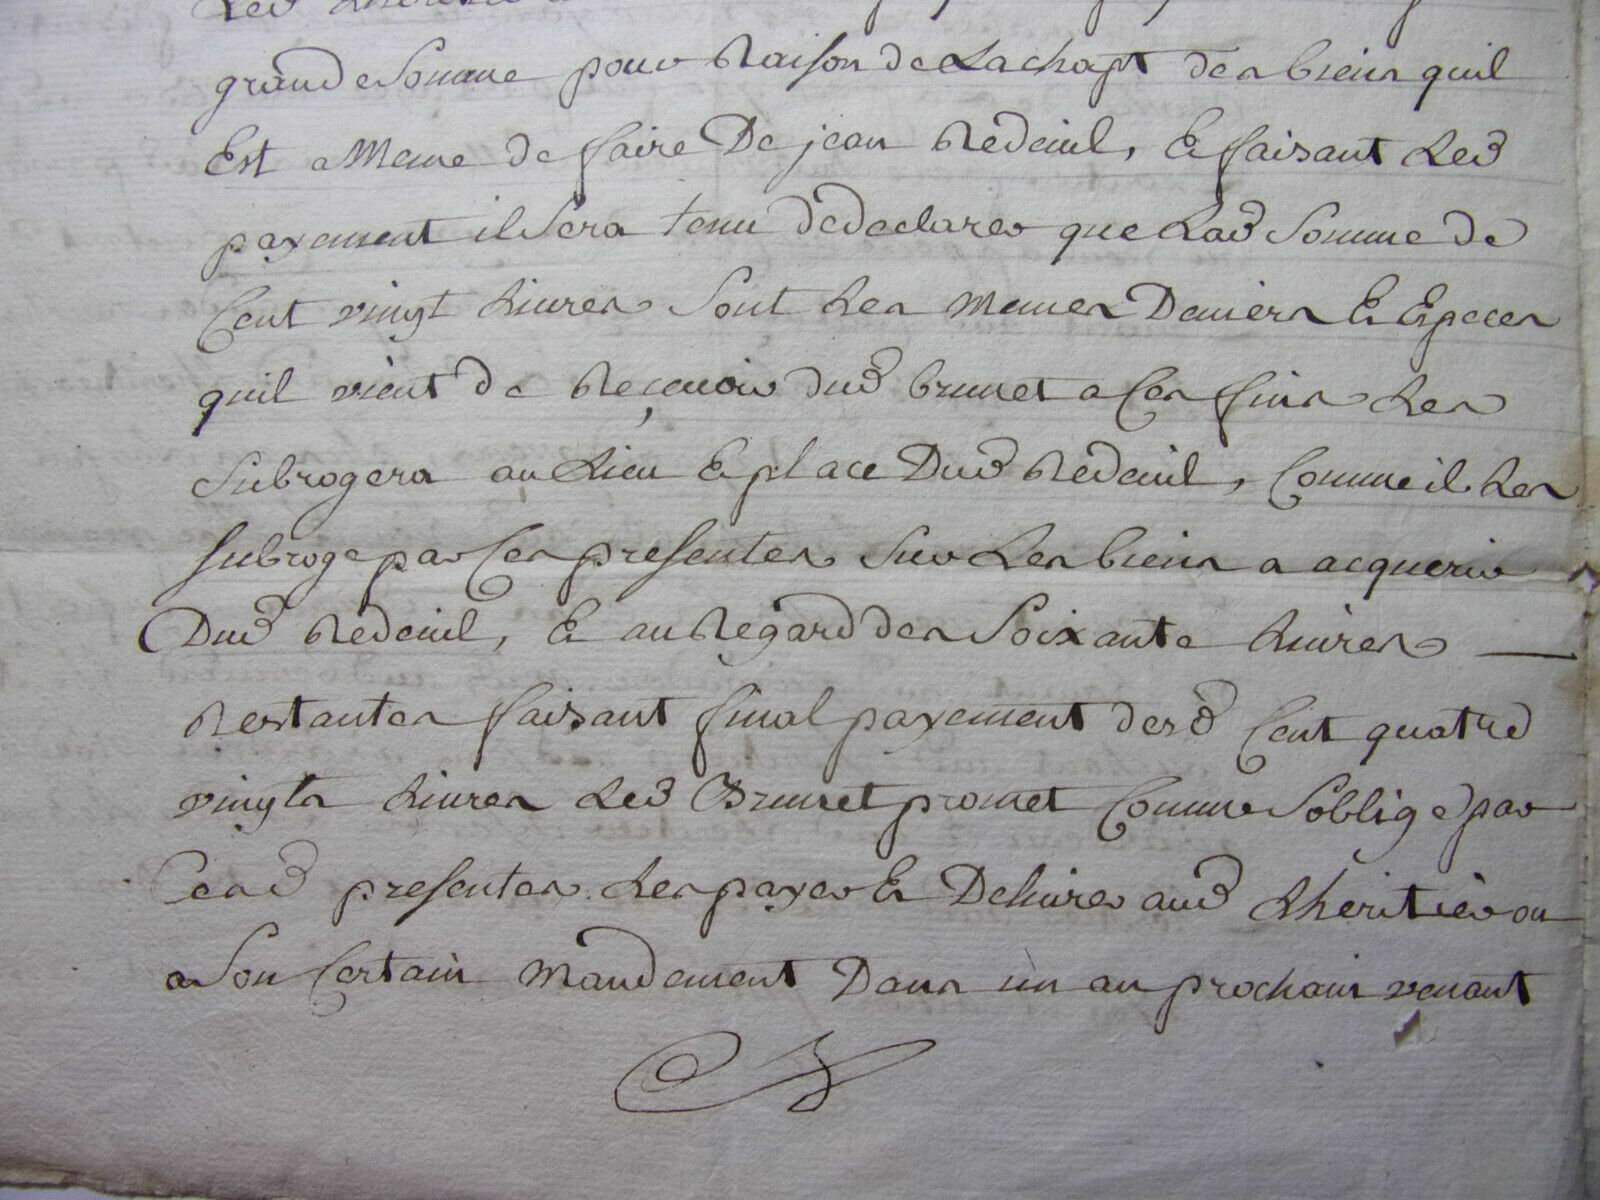 Led Lheritier
grande Somme pour Raison de Lachapt des biens quil
Est a Meme de faire De jean Redeuil, & faisant Led
payement il Sera tenu de declarer que Lad Somme de
Cent vingt Livres Sont Les Memes Deniers & Especes
quil vient de Reçevoir dud brunet a Ces fins Les
Subrogera au Lieu & place Dud Redeuil, Comme il Les
subroge par Ces presentes Sur Les biens a acquerir
Dud Redeuil, & au Regard des Soixante Livres —
Restantes faisant final payement desd Cent quatre
vingts Livres Led Brunet promet Comme Soblige par
Cesd presentes Les payer & Delivrer aud Lheritièr ou
a Son Certain Mandement Dans un an prochain venant